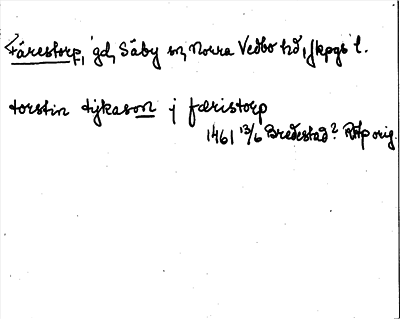 Fårestorp, gd, Säby sn, Norra Vedbo hd, Jkpgs l.
torstin tykason j færistorp
1461 13/6 Bredestad? RAp orig.